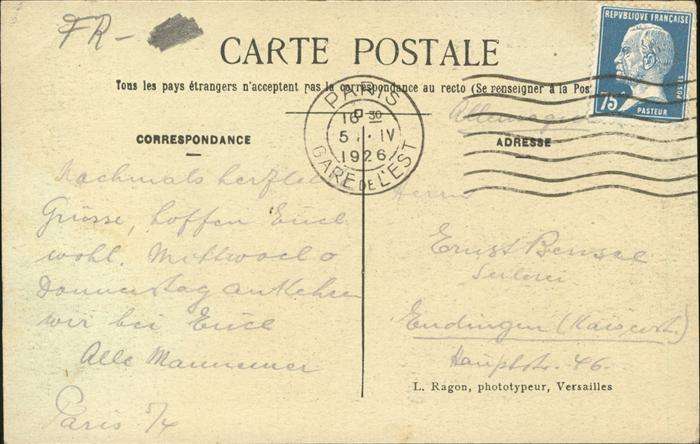 FR-
CARTE POSTALE
REPVBLIQUE FRANÇAISE
POSTES
75
PASTEUR
Tous les pays étrangers n'acceptent pas la correspondance au recto (Se renseigner à la Pos
PARIS
16 30
5 . IV
1926
GARE DE L'EST
CORRESPONDANCE
ADRESSE
Nochmals herzlich
Grüsse, hoffen Euch
wohl. Mittwoch o
Donnerstag ankehren
wir bei Euch
Alle Mannemer
Paris 5/4
Allemagne
Herrn
Ernst
Seilerei
Endingen (Kaiserst.)
Hauptstr. 46.
L. Ragon, phototypeur, Versailles